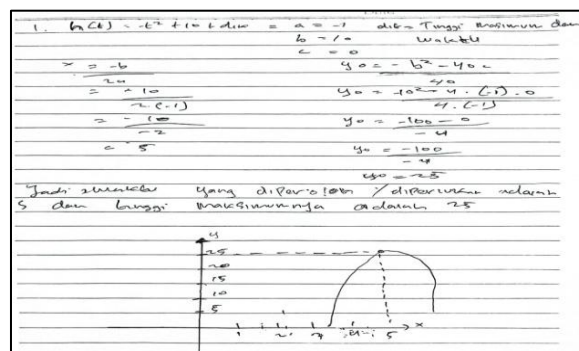 1. h(t) = -t² + 10 t dik = a = -1 dit = Tinggi maksimum dan
b = 10 waktu
c = 0
x = -b
2a
= -10
2(-1)
= -10
-2
= 5
yo = -b² - 4ac
4a
yo = -10² - 4 . (-1) . 0
4 . (-1)
yo = -100 - 0
-4
yo = -100
-4
yo = 25
Jadi waktu yang diperoleh / diperlukan adalah
5 dan tinggi maksimumnya adalah 25
y
25
20
15
10
5
1 2 5 x